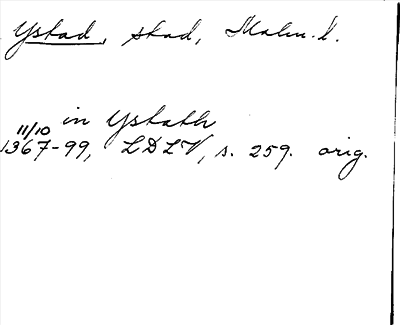 Ystad, stad, Malm. l.
in Ystath
11/10
1367-99, LDLV, s. 259. orig.